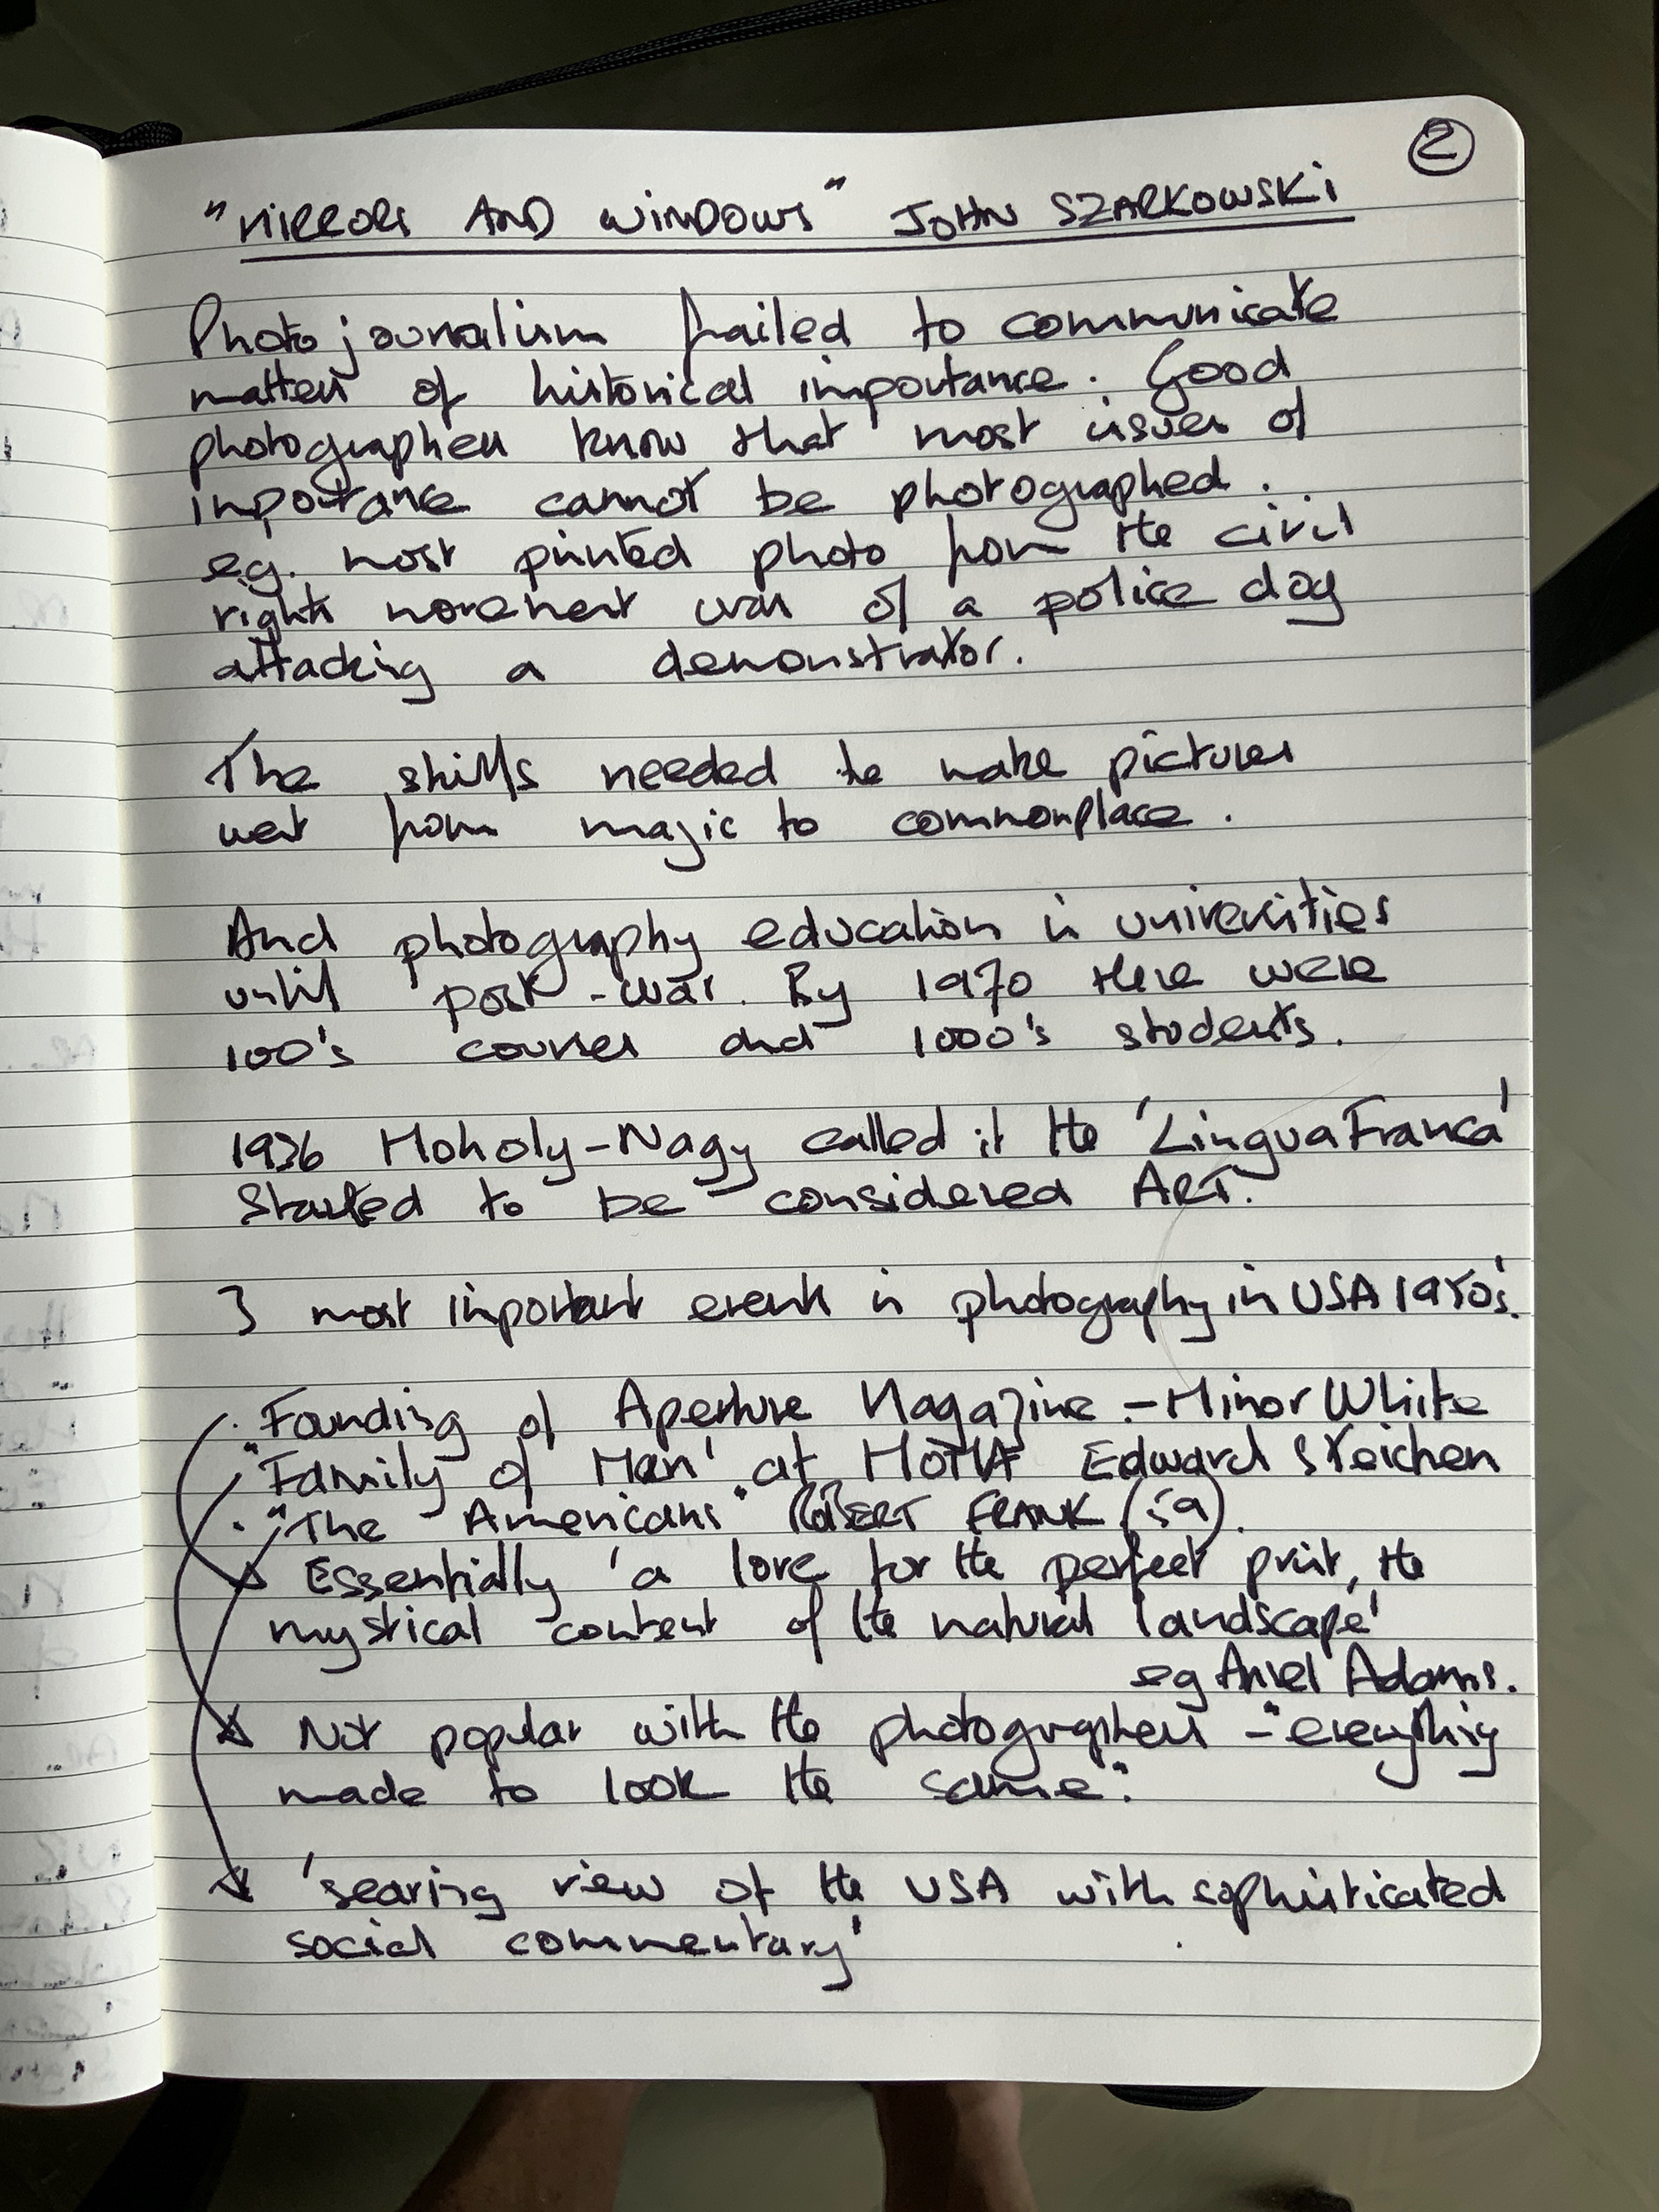 2
"MIRRORS AND WINDOWS" JOHN SZARKOWSKI
Photojournalism failed to communicate
matters of historical importance. Good
photographers know that most issues of
importance cannot be photographed.
eg. most printed photo from the civil
rights movement was of a police dog
attacking a demonstrator.
The skills needed to make pictures
went from magic to commonplace.
And photography education in universities
until post-war. By 1970 there were
100's courses and 1000's students.
1936 Moholy-Nagy called it the 'Lingua Franca'
Started to be considered ART.
3 most important events in photography in USA 1950's.
· Founding of Aperture Magazine - Minor White
· "Family of Man' at MOMA Edward Steichen
· "The Americans" ROBERT FRANK (59).
Essentially 'a love for the perfect print, the
mystical content of the natural landscape'
eg Ansel Adams.
Not popular with the photographers - "everything
made to look the same".
'searing view of the USA with sophisticated
social commentary'